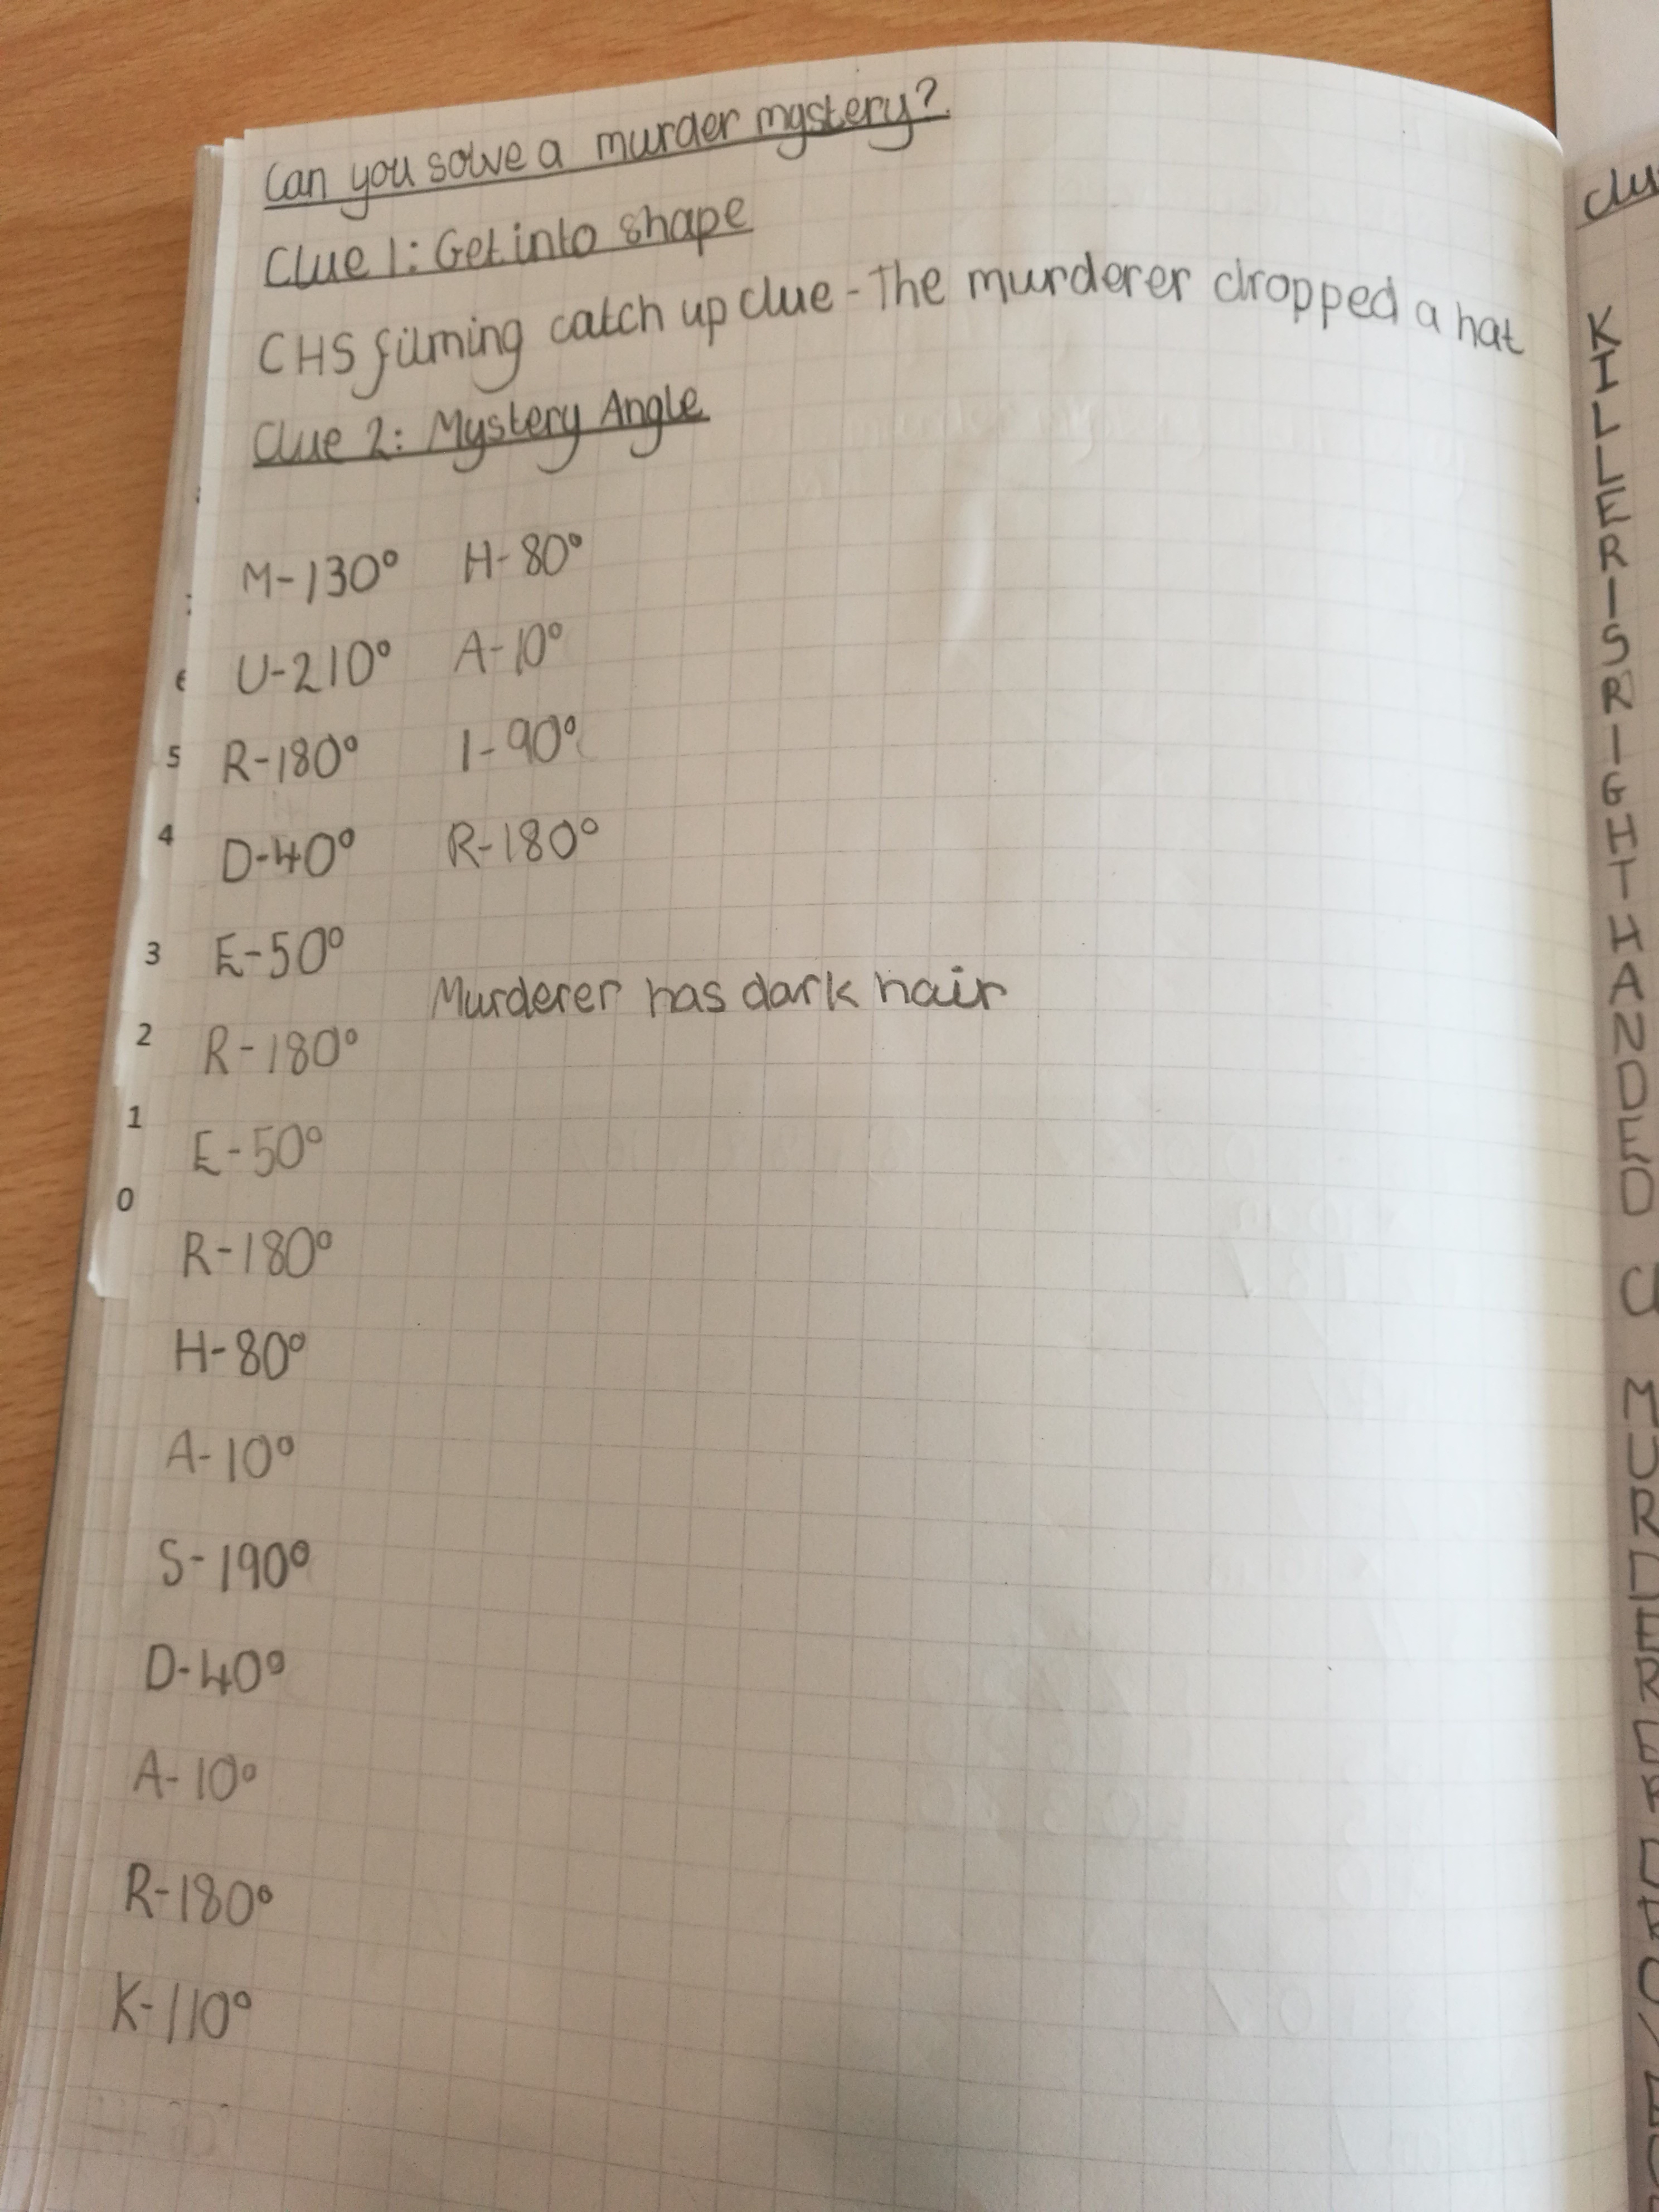 Can you solve a murder mystery?
Clue 1: Get into shape
CHS filming catch up clue - The murderer dropped a hat
Clue 2: Mystery Angle
M-130° H-80°
U-210° A-10°
R-180° I-90°
D-40° R-180°
E-50°
Murderer has dark hair
R-180°
E-50°
R-180°
H-80°
A-10°
S-190°
D-40°
A-10°
R-180°
K-110°
6
5
4
3
2
1
0
K
I
L
L
E
R
I
S
R
I
G
H
T
H
A
N
D
E
D
U
M
U
R
D
E
R